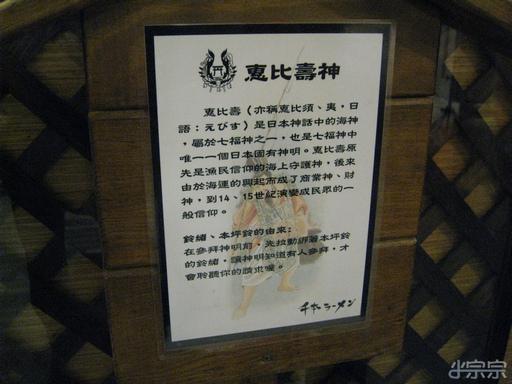 惠比壽神
惠比壽（亦稱惠比須、夷，日
語：えびす）是日本神話中的海神
，屬於七福神之一，也是七福神中
唯一一個日本固有神明。惠比壽原
先是漁民信仰的海上守護神，後來
由於海運的興起而成了商業神、財
神，到14、15世紀演變成民眾的一
般信仰。
鈴緒、本坪鈴的由來：
在參拜神明前，先拉動綁著本坪鈴
的鈴緒，讓神明知道有人參拜，才
會聆聽你的請求喔。
ラーメン
小宗宗